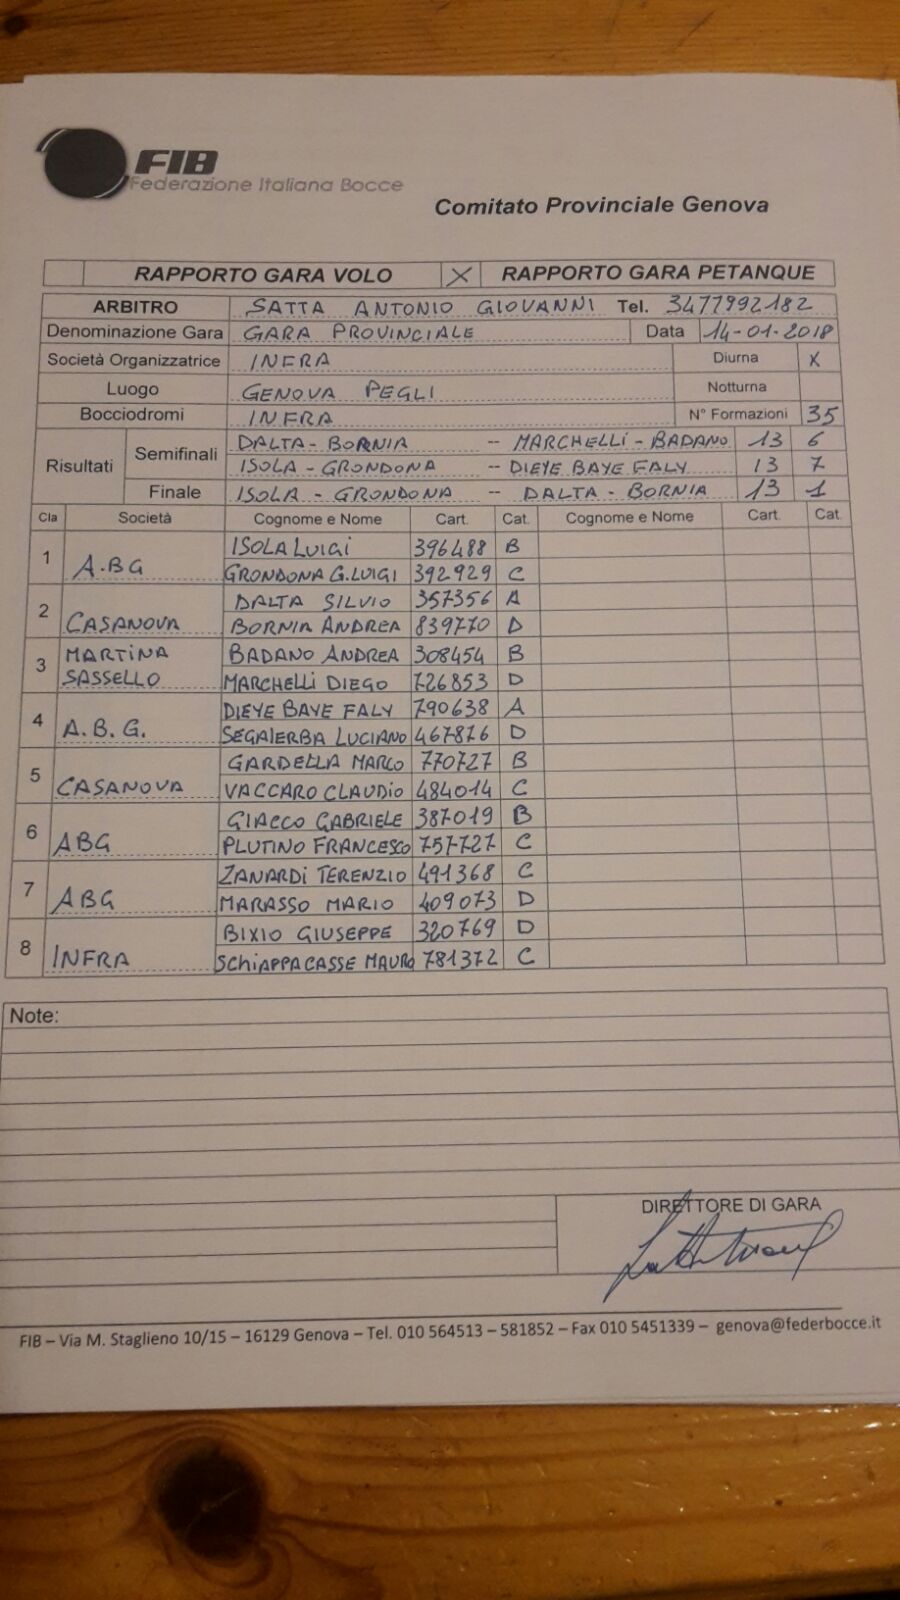 FIB
Federazione Italiana Bocce
Comitato Provinciale Genova
RAPPORTO GARA VOLO X RAPPORTO GARA PETANQUE
ARBITRO SATTA ANTONIO GIOVANNI Tel. 3477992182
Denominazione Gara GARA PROVINCIALE Data 14-01-2018
Società Organizzatrice INFRA Diurna X
Luogo GENOVA PEGLI Notturna
Bocciodromi INFRA N° Formazioni 35
Risultati Semifinali DALTA - BORNIA -- MARCHELLI - BADANO 13 6
ISOLA - GRONDONA -- DIEYE BAYE FALY 13 7
Finale ISOLA - GRONDONA -- DALTA - BORNIA 13 1
Cla Società Cognome e Nome Cart. Cat. Cognome e Nome Cart. Cat.
1 A.BG ISOLA LUIGI 396488 B
GRONDONA G.LUIGI 392929 C
2 CASANOVA DALTA SILVIO 357356 A
BORNIA ANDREA 839770 D
3 MARTINA BADANO ANDREA 308454 B
SASSELLO MARCHELLI DIEGO 726853 D
4 A.B.G. DIEYE BAYE FALY 790638 A
SEGALERBA LUCIANO 467816 D
5 CASANOVA GARDELLA MARCO 770727 B
VACCARO CLAUDIO 484014 C
6 ABG GIACCO GABRIELE 387019 B
PLUTINO FRANCESCO 757727 C
7 ABG ZANARDI TERENZIO 491368 C
MARASSO MARIO 409073 D
8 INFRA BIXIO GIUSEPPE 320769 D
SCHIAPPACASSE MAURO 781372 C
Note:
DIRETTORE DI GARA
FIB – Via M. Staglieno 10/15 – 16129 Genova – Tel. 010 564513 – 581852 – Fax 010 5451339 – genova@federbocce.it